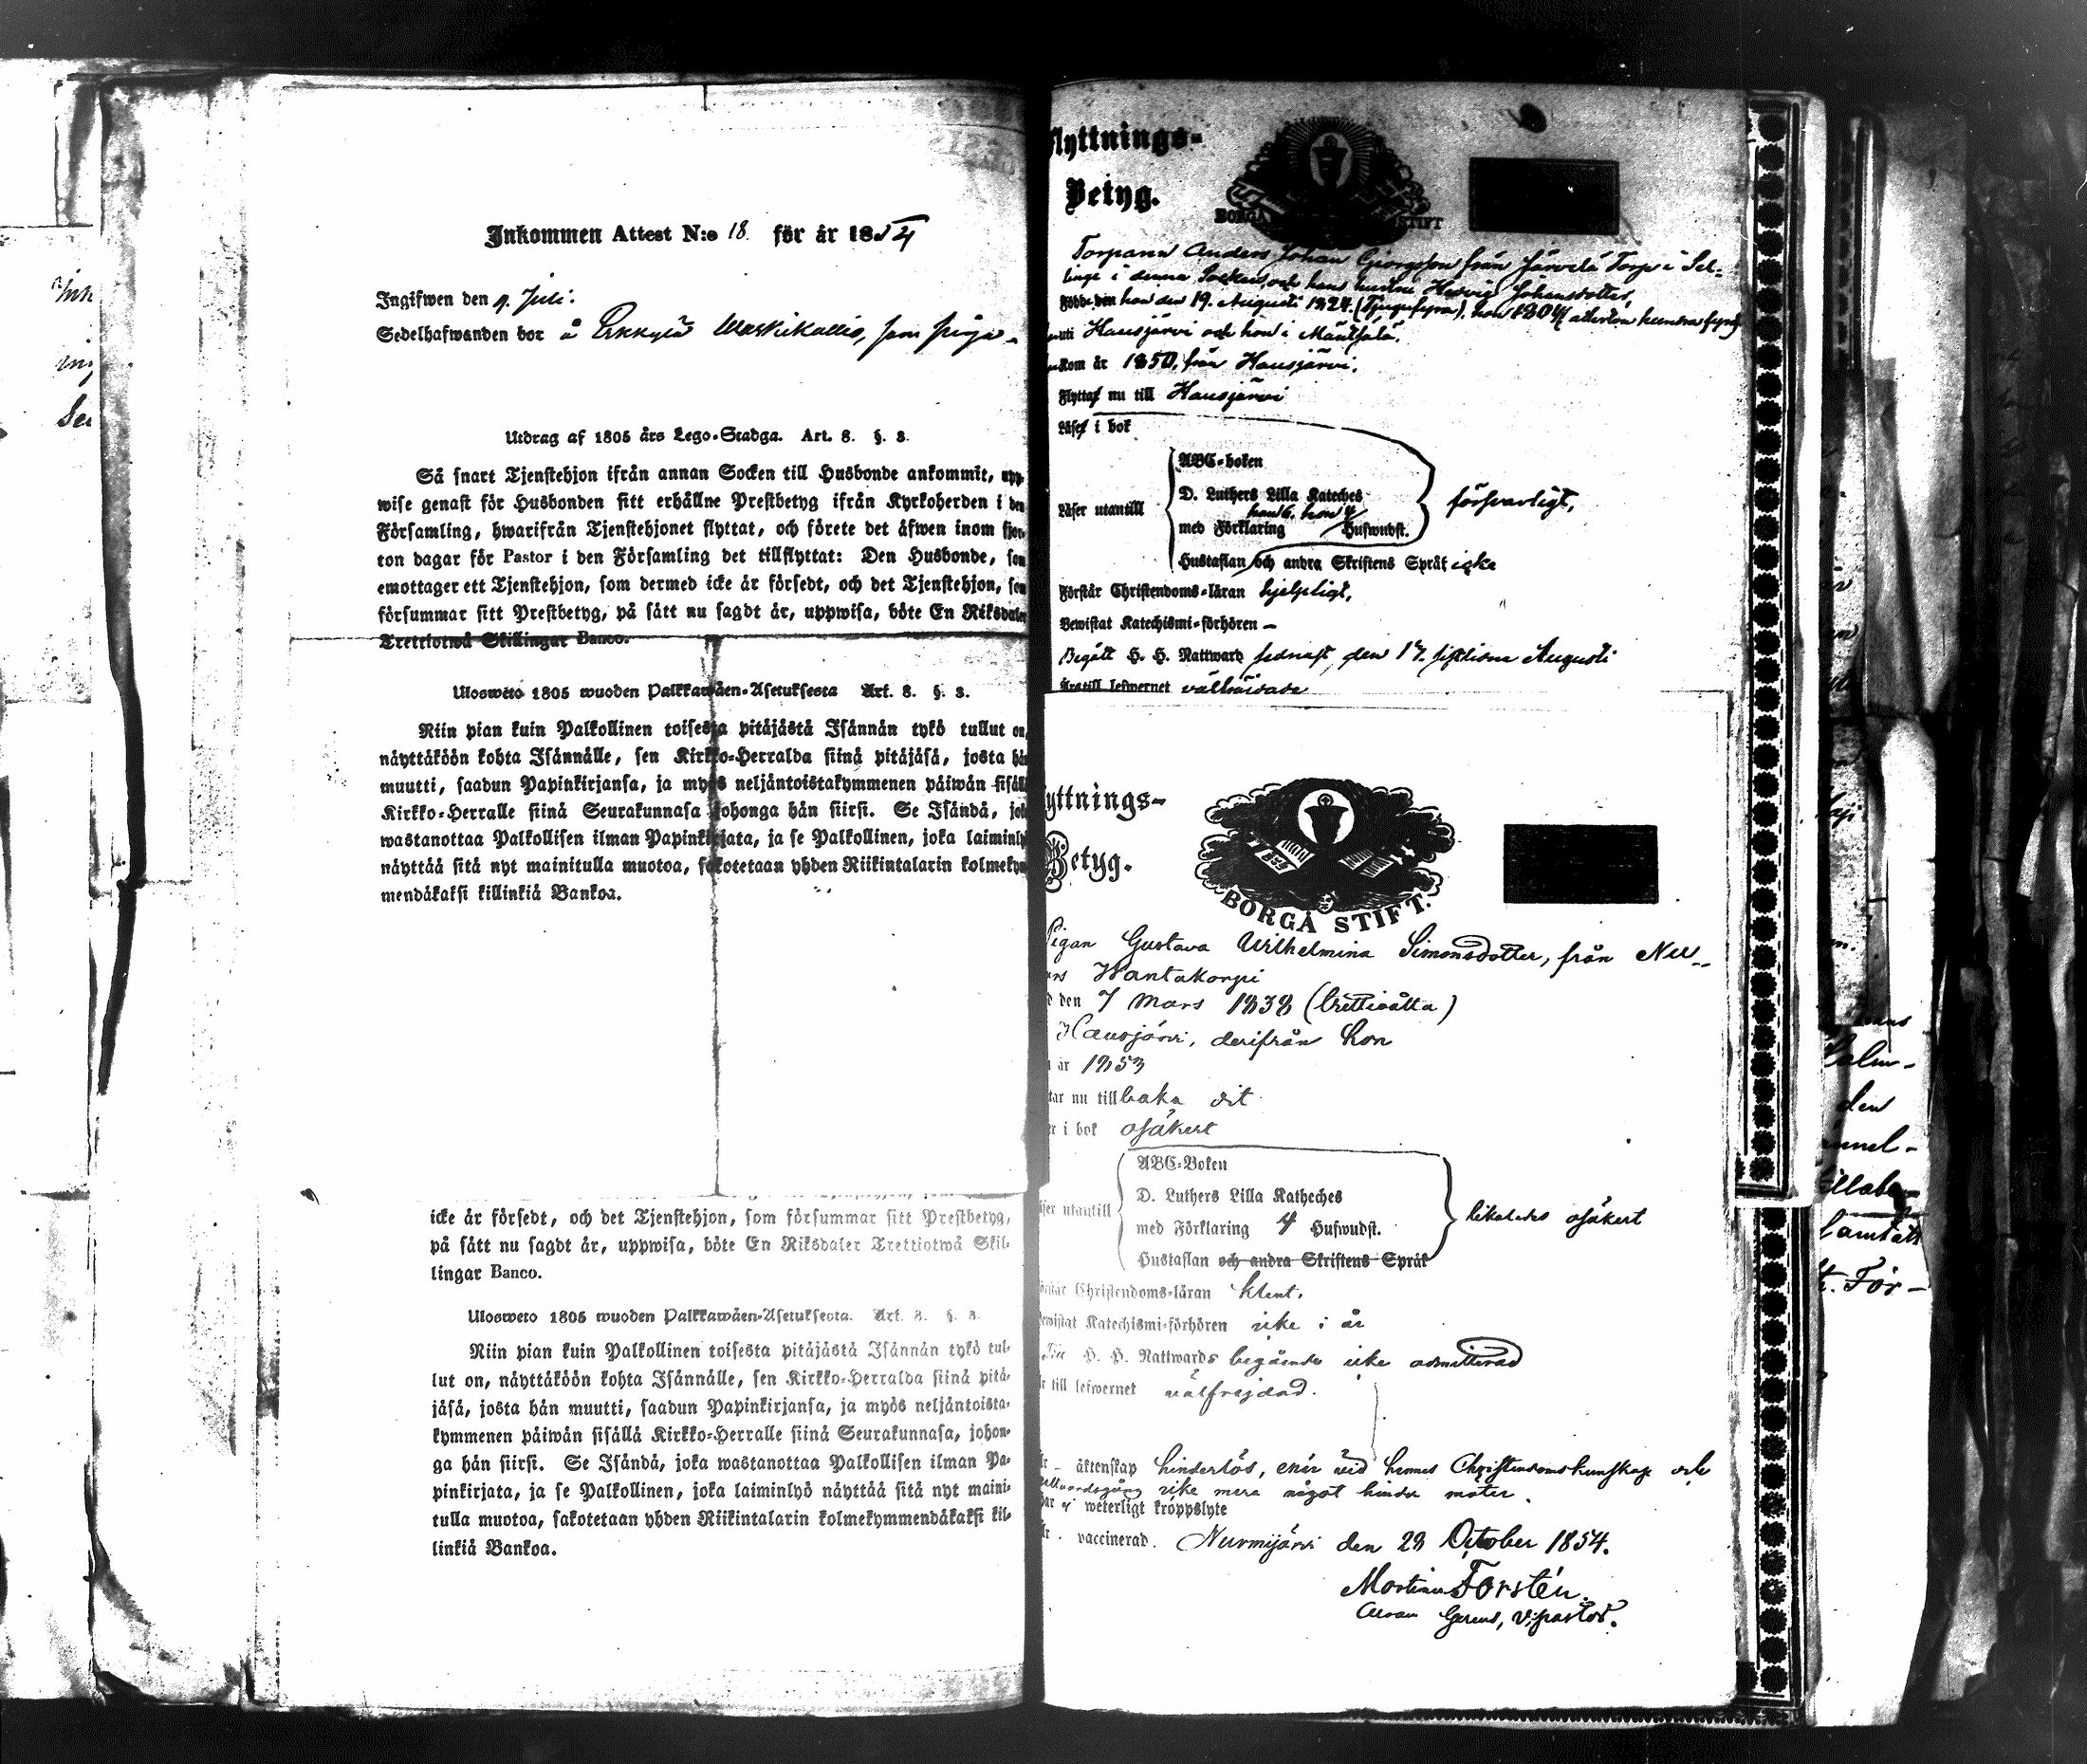 Inkommen Attest N:o 18. för år 1854
Ingifwen den 9. Juli.
Sedelhafwanden bor å Erkkylä Waskikallio, som piga
Utdrag af 1805 års Lego-Stadga. Art. 8. §. 8.
Så snart Tjenstehjon ifrån annan Socken till Husbonde ankommit, upp-
wise genast för Husbonden sitt erhållne Prestbetyg ifrån Kyrkoherden i den
Församling, hwarifrån Tjenstehjonet flyttat, och förete det äfwen inom fjor-
ton dagar för Pastor i den Församling det tillflyttat: Den Husbonde, som
emottager ett Tjenstehjon, som dermed icke är försedt, och det Tjenstehjon, som
försummar sitt Prestbetyg, på sätt nu sagdt är, uppwisa, böte En Riksdaler
Trettiotwå Skillingar Banco.
Ulosweto 1805 wuoden Palkkawäen-Asetuksesta Art. 8. §. 8.
Niin pian kuin Palkollinen toisesta pitäjästä Isännän tykö tullut on,
näyttäköön kohta Isännälle, sen Kirkko-Herralda siinä pitäjäsä, josta hän
muutti, saadun Papinkirjansa, ja myös neljäntoistakymmenen päiwän sisällä
Kirkko-Herralle siinä Seurakunnasa johonga hän siirsi. Se Isändä, joka
wastanottaa Palkollisen ilman Papinkirjata, ja se Palkollinen, joka laiminlyö
näyttää sitä nyt mainitulla muotoa, sakotetaan yhden Riikintalarin kolmekym-
mendäkaksi killinkiä Bankoa.
icke är försedt, och det Tjenstehjon, som försummar sitt Prestbetyg,
på sätt nu sagdt är, uppwisa, böte En Riksdaler Trettiotwå Skil-
lingar Banco.
Ulosweto 1805 wuoden Palkkawäen-Asetuksesta. Art. 8. §. 8.
Niin pian kuin Palkollinen toisesta pitäjästä Isännän tykö tul-
lut on, näyttäköön kohta Isännälle, sen Kirkko-Herralda siinä pitä-
jäsä, josta hän muutti, saadun Papinkirjansa, ja myös neljäntoista-
kymmenen päiwän sisällä Kirkko-Herralle siinä Seurakunnasa, johon-
ga hän siirsi. Se Isändä, joka wastanottaa Palkollisen ilman Pa-
pinkirjata, ja se Palkollinen, joka laiminlyö näyttää sitä nyt maini-
tulla muotoa, sakotetaan yhden Riikintalarin kolmekymmendäkaksi kil-
linkiä Bankoa.
Flyttnings-
Betyg.
BORGÅ STIFT
Torparn Anders Johan Georgsson från Järvelä Torp i Sel-
linge i denna Socken, och hans hustru Hedvig Johansdotter,
Född den han den 19. Augusti 1824. (Tjugufyra), hon 1804 adertonhundra fyra
uti Hausjärvi och hon i Mäntsälä.
kom år 1850, från Hausjärvi.
Flyttar nu till Hausjärvi
Läser i bok
Läser utantill
ABC-boken
D. Luthers Lilla Kateches
han 6. hon 4
med Förklaring Hufwudst.
Hustaflan och andra Skriftens Språk icke
försvarligt,
Förstår Christendoms-läran hjelpligt,
Bewistat Katechismi-förhören —
Begått H. H. Nattward sednast den 17. sistledne Augusti
Äro till lefwernet välkända
yttnings-
Betyg.
BORGÅ STIFT.
Pigan Gustava Wilhelmina Simonsdotter, från Nu-
ars Hantakorpi
d den 7 Mars 1838 (trettioåtta)
Hausjärvi, derifrån hon
år 1853
tar nu till baka dit
r i bok osäkert
äser utantill
ABC-Boken
D. Luthers Lilla Katheches
med Förklaring 4 Hufwudst.
Hustaflan och andra Skriftens Språk
likaledes osäkert
örstår Christendoms-läran klent.
Bewistat Katechismi-förhören icke i år
Till H. H. Nattwards begående icke admitterad
r till lefwernet välfrejdad.
äktenskap hinderlös, enär vid hennes Christendomskunskap och
Nattvardsgång icke mera något hinder möter.
har ej weterligt kroppslyte
vaccinerad. Nurmijärvi den 28 October 1854.
Martinus Forstén.
v. pastor.